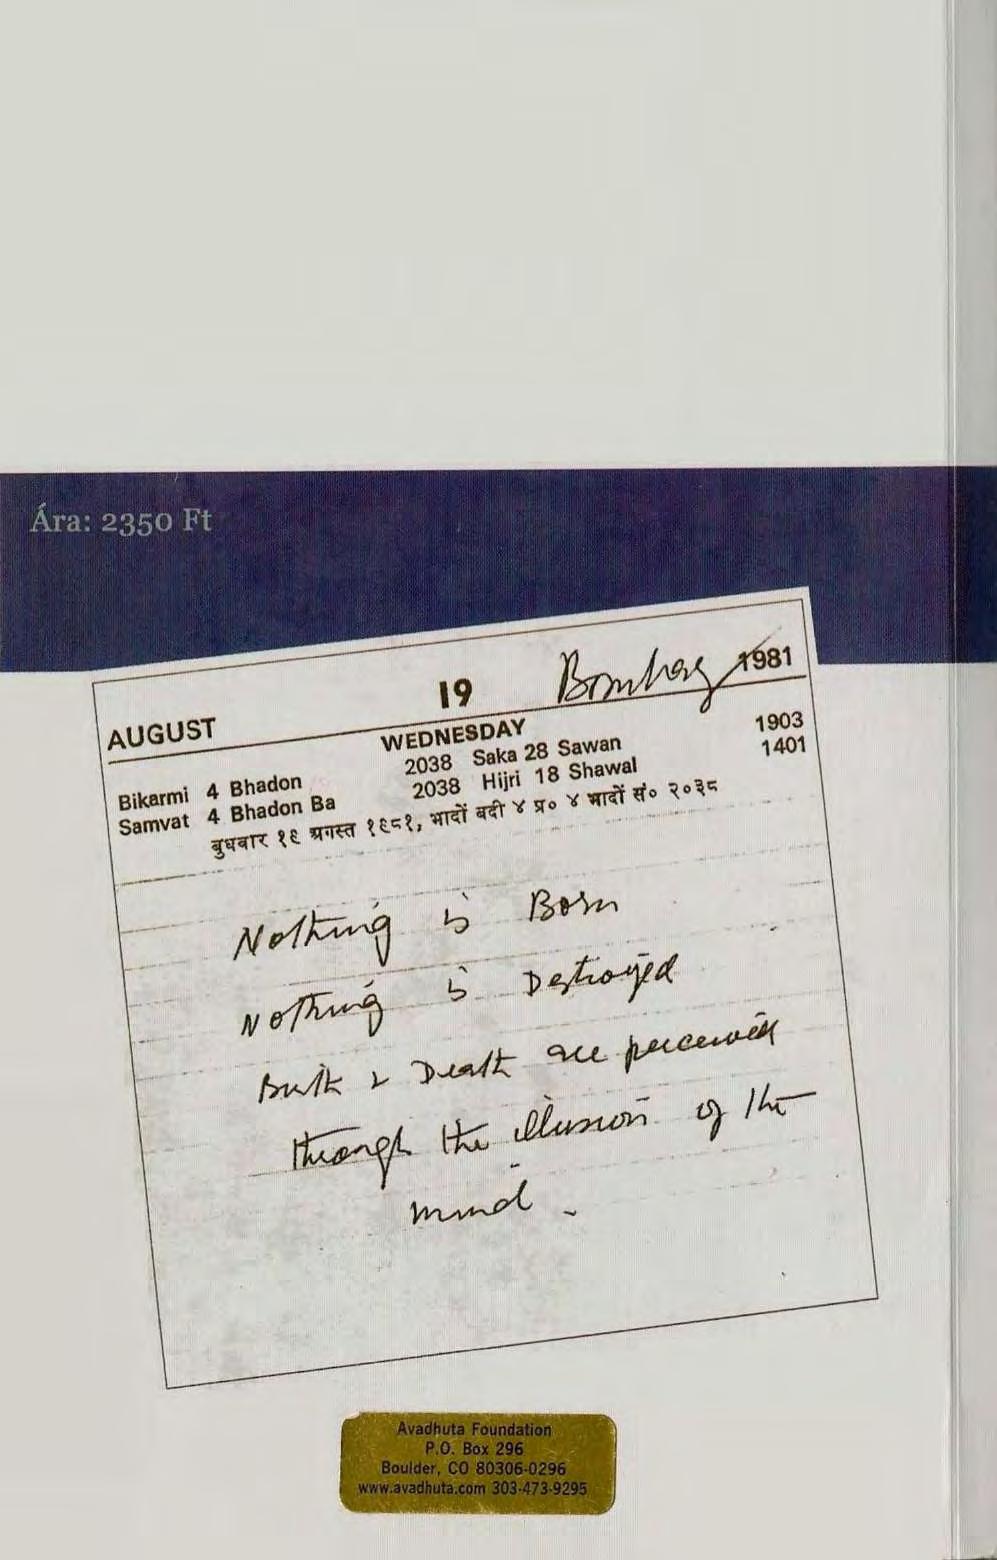 Ára: 2350 Ft
AUGUST 19 Bombay 1981
WEDNESDAY
Bikarmi 4 Bhadon 2038 Saka 28 Sawan 1903
Samvat 4 Bhadon Ba 2038 Hijri 18 Shawal 1401
बुधवार १९ अगस्त १९८१, भादों बदी ४ प्र० ४ भादों सं० २०३८
Nothing is Born
Nothing is Destroyed
Birth & Death are perceived
through the illusion of the
mind.
Avadhuta Foundation
P.O. Box 296
Boulder, CO 80306-0296
www.avadhuta.com 303-473-9295